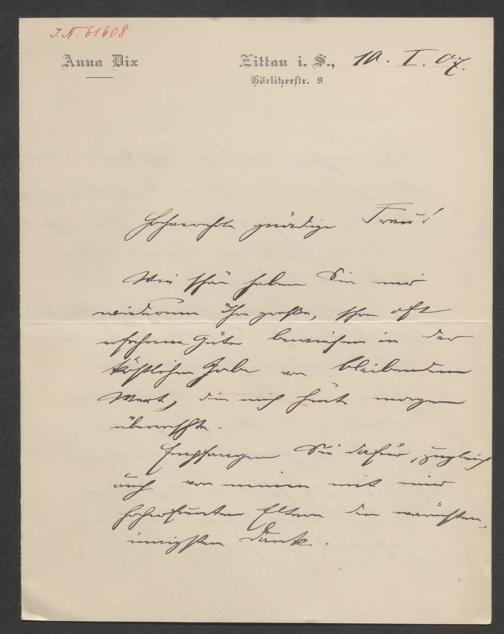 J.N. 61608
Anna Dix
Zittau i. S., 10. I. 07.
Görlitzerstr. 9
Hochverehrte gnädige Frau!
Wie schön haben Sie mir
wiederum Ihre große, schon oft
erfahrene Güte bewiesen in der
köstlichen Gabe von bleibendem
Wert, die mich heute morgen
überraschte.
Empfangen Sie dafür, zugleich
auch von meinen mit mir
hocherfreuten Eltern den wärmsten,
innigsten Dank.